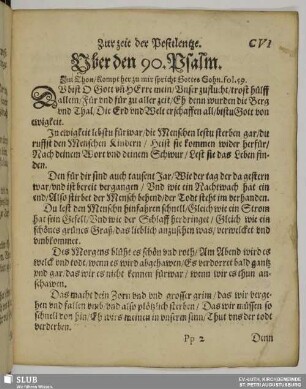 Zur zeit der Pestilentze. CVI
Vber den 90. Psalm.
Im Thon/Kompt her zu mir spricht Gottes Sohn. fol. 59.
DV bist O Gott vnd HErre mein/ Vnser zuflucht/ trost hülff
allein/ Für vnd für zu aller zeit/ Eh denn wurden die Berg
vnd Thal/ Die Erd vnd Welt erschaffen all/ bistu Gott von
ewigkeit.
In ewigkeit lebstu fürwar/ die Menschen lestu sterben gar/ du
ruffst den Menschen Kindern/ Heist sie kommen wider herfür/
Nach deinem Wort vnd deinem Schwur/ Lest sie das Leben fin-
den.
Den für dir sind auch tausent Jar/ Wie der tag der da gestern
war/ vnd ist bereit vergangen/ Vnd wie ein Nachtwach hat ein
end/ Also stirbet der Mensch behend/ der Todt steht im vorhanden.
Du lest den Menschn hinfahren schnell/ Gleich wie ein Strom
hat sein Gefell/ Vnd wie der Schlaff herdringet/ Gleich wie ein
schönes grünes Graß/ das lieblich anzusehen was/ verwelcket vnd
vmbkommet.
Des Morgens blüht es schön vnd roth/ Am Abend wird es
welck vnd todt/ wenn es wird abgehawen/ Es verdorret bald gantz
vnd gar/ das wir es nicht kennen fürwar/ wenn wir es thun an-
schawen.
Das macht dein Zorn vnd vnd grosser grim/ das wir verge-
hen vnd fallen hin/ vnd also plötzlich sterben/ Das wir müssen so
schnell von hin/ Eh wirs meinen in vnserm sinn/ Thut vns der todt
verderben.
Pp 2 Denn
SLUB
Wir führen Wissen.
EV.-LUTH. KIRCHGEMEINDE
ST. PETRI AUGUSTUSBURG